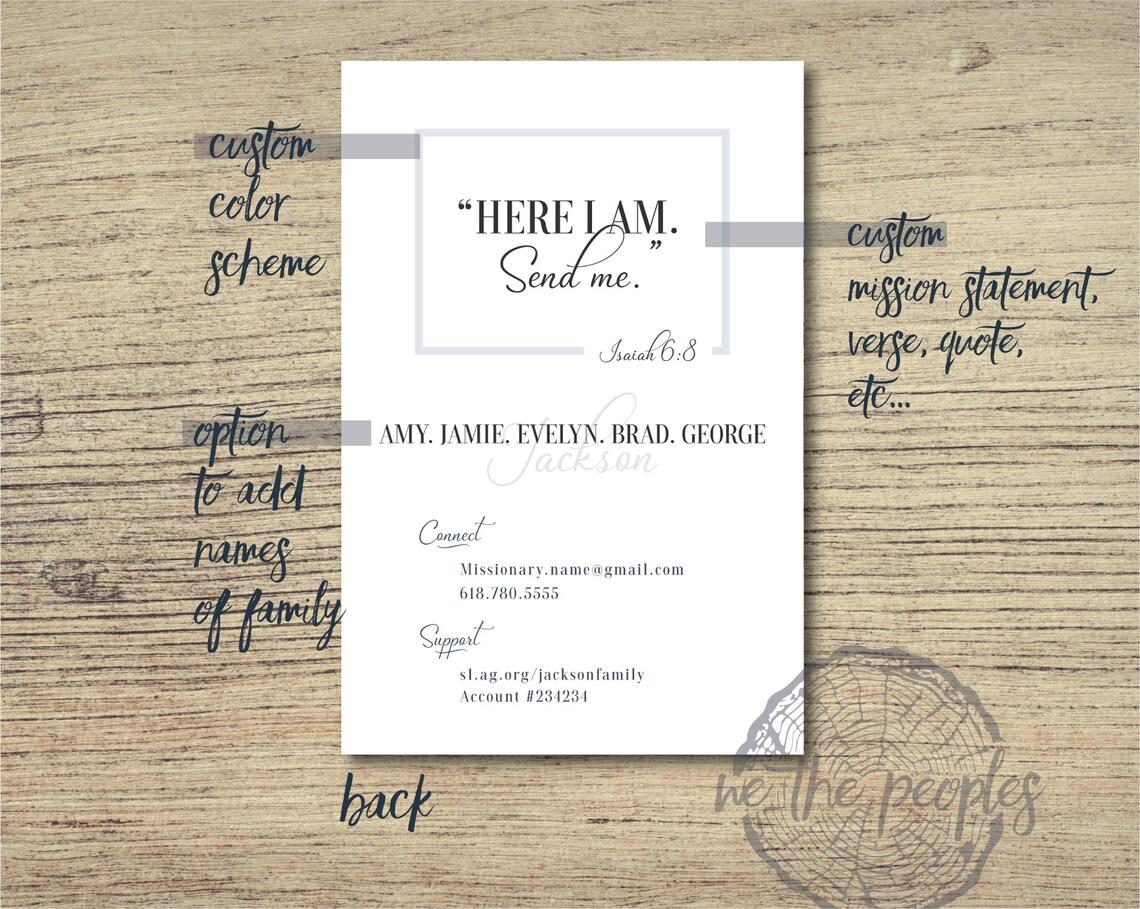 custom
color
scheme
“HERE I AM.
Send me.”
Isaiah 6:8
custom
mission statement,
verse, quote,
etc...
option
to add
names
of family
AMY. JAMIE. EVELYN. BRAD. GEORGE
Jackson
Connect
Missionary.name@gmail.com
618.780.5555
Support
s1.ag.org/jacksonfamily
Account #234234
back
we the peoples